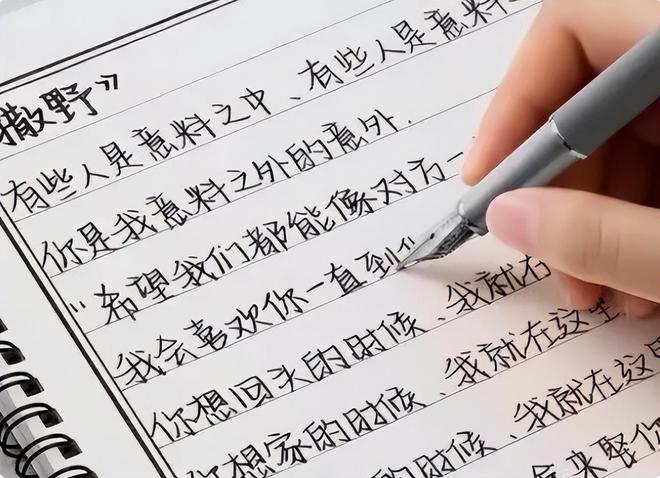 撒野》
有些人是意料之中、有些人是意料
有些人是意料之外的意外.
你是我意料之外的意外.
"希望我们都能像对方一
我会喜欢你一直到
你想回头的时候、我就在
你想家的时候、我就在这里
的时候、我就在这里
会来娶你